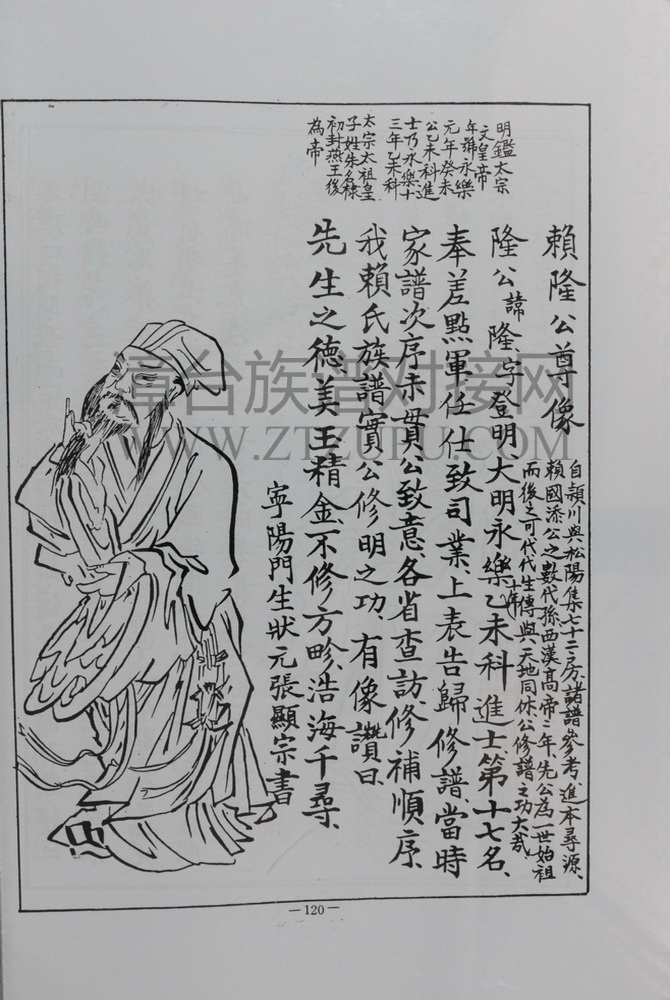 賴隆公尊像
自頴川與松陽集七十二房諸譜參考進本尋源、
賴國添公之數代孫西漢高帝二年、先公為一世始祖
而後之可代代生傳與天地同休、公修譜之功大哉、
隆公諱隆字登明、大明永樂十年乙未科進士第十七名、
奉差點軍、任仕致司業、上表告歸修譜、當時
家譜次序未貫、公致意、各省查訪、修補順序、
我賴氏族譜實公修明之功、有像讚曰、
先生之德、美玉精金、不修方畛、浩海千尋、
寧陽門生狀元張顯宗書
明鑑太宗
文皇帝
年號永樂
元年癸未
公乙未科進
士乃永樂十
三年乙未科
太宗太祖皇
子姓朱名棣
初封燕王後
為帝
漳台族谱对接网
WWW.ZTZUPU.COM
—120—